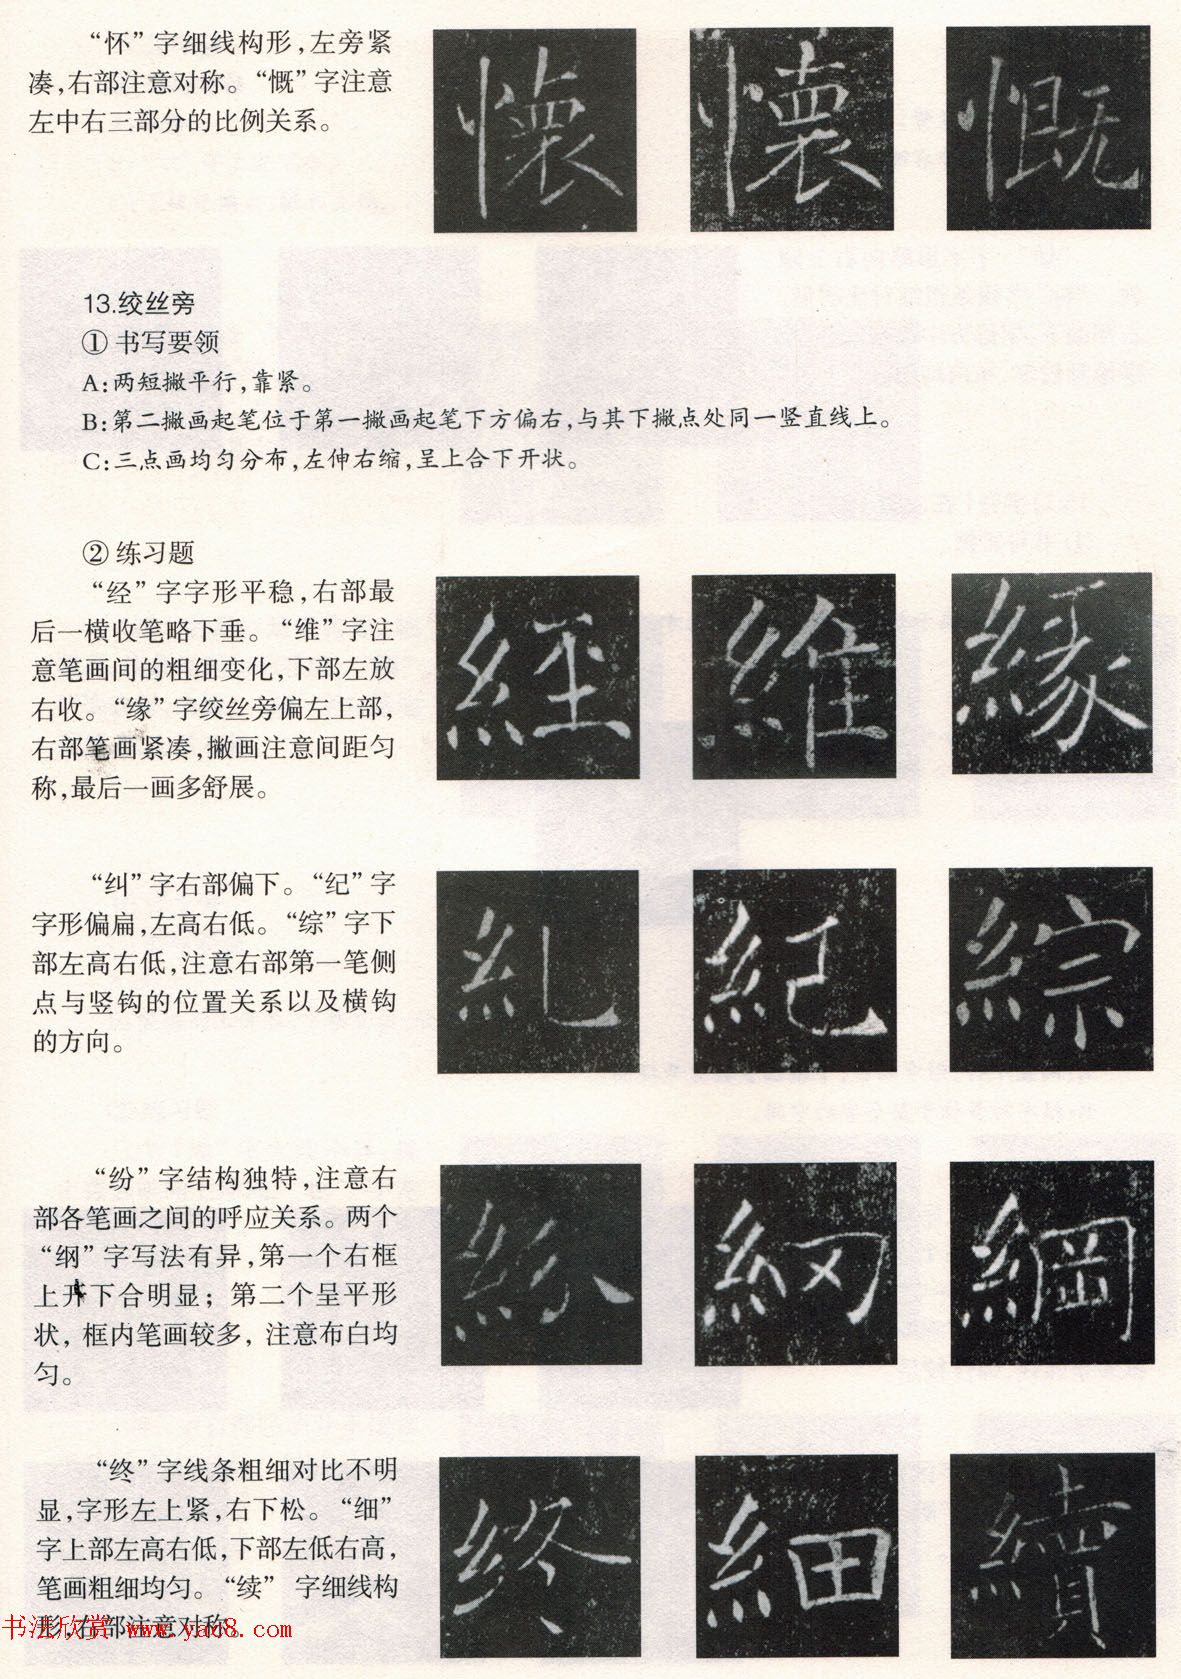 “怀”字细线构形,左旁紧
凑,右部注意对称。“慨”字注意
左中右三部分的比例关系。
懷 懷 慨
13.绞丝旁
① 书写要领
A:两短撇平行,靠紧。
B:第二撇画起笔位于第一撇画起笔下方偏右,与其下撇点处同一竖直线上。
C:三点画均匀分布,左伸右缩,呈上合下开状。
② 练习题
“经”字字形平稳,右部最
后一横收笔略下垂。“维”字注
意笔画间的粗细变化,下部左放
右收。“缘”字绞丝旁偏左上部,
右部笔画紧凑,撇画注意间距匀
称,最后一画多舒展。
經 維 緣
“纠”字右部偏下。“纪”字
字形偏扁,左高右低。“综”字下
部左高右低,注意右部第一笔侧
点与竖钩的位置关系以及横钩
的方向。
糺 紀 綜
“纷”字结构独特,注意右
部各笔画之间的呼应关系。两个
“纲”字写法有异,第一个右框
上开下合明显; 第二个呈平形
状, 框内笔画较多, 注意布白均
匀。
綱
“终”字线条粗细对比不明
显,字形左上紧,右下松。“细”
字上部左高右低,下部左低右高,
笔画粗细均匀。“续” 字细线构
形,右部注意对称。
終 細 續
书法欣赏 www.yac8.com